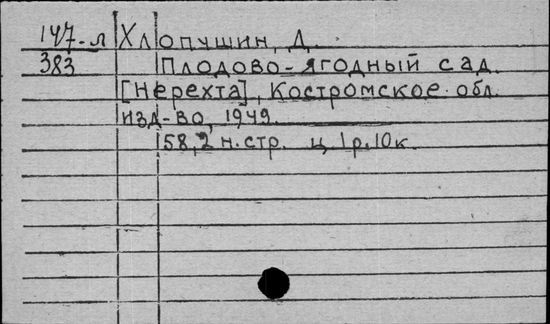 147-л Хлопушин, Д.
383 Плодово-ягодный сад.
[Нерехта], Костромское обл.
изд-во, 1949.
58,2 н.стр. ц. 1р.10к.